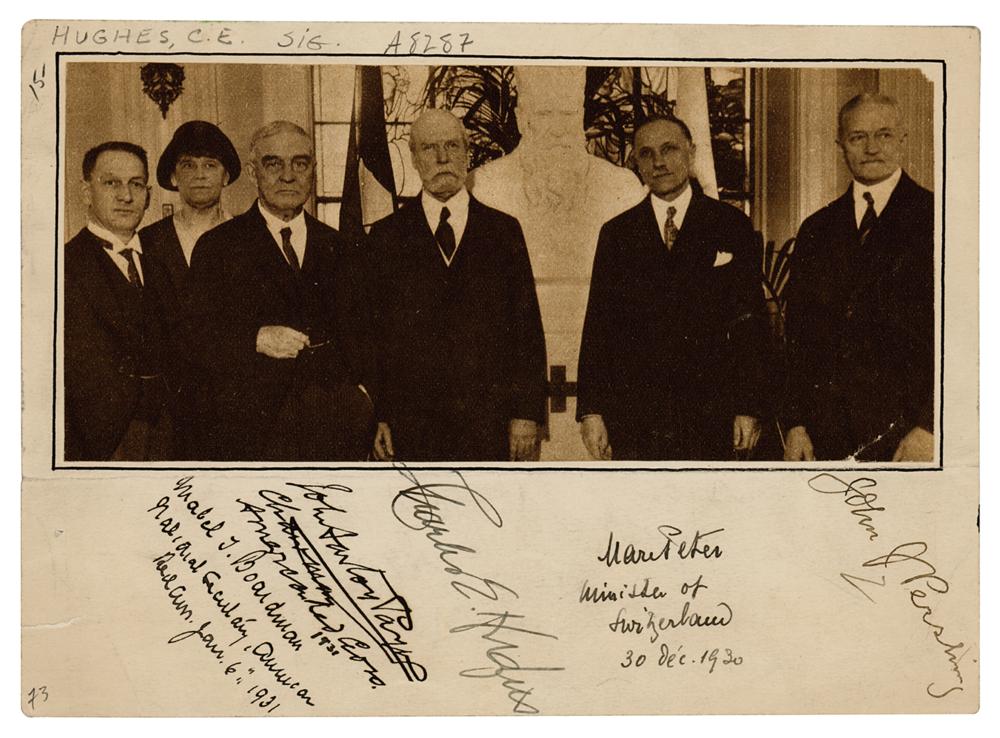 HUGHES, C.E. SIG. A8287
15-
Mabel T. Boardman
National Secretary, American
Red Cross. Jan. 6" 1931
John Barton Payne
Chairman
American Red Cross.
1931
Charles E. Hughes
Marc Peter
Minister of
Switzerland
30 déc. 1930
John J Pershing
73